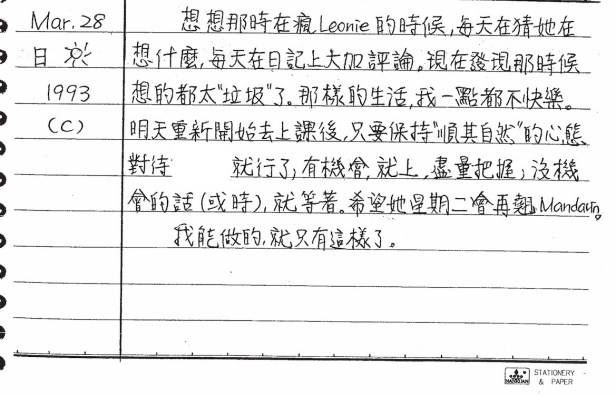 Mar. 28
日
1993
(C)
想想那時在瘋Leonie的時候,每天在猜她在
想什麼,每天在日記上大加評論。現在發現那時候
想的都太"垃圾"了。那樣的生活,我一點都不快樂。
明天重新開始去上課後,只要保持"順其自然"的心態
對待 就行了;有機會,就上,儘量把握;沒機
會的話(或時),就等著。希望她星期二會再翹Mandarin。
我能做的,就只有這樣了。
STATIONERY
& PAPER